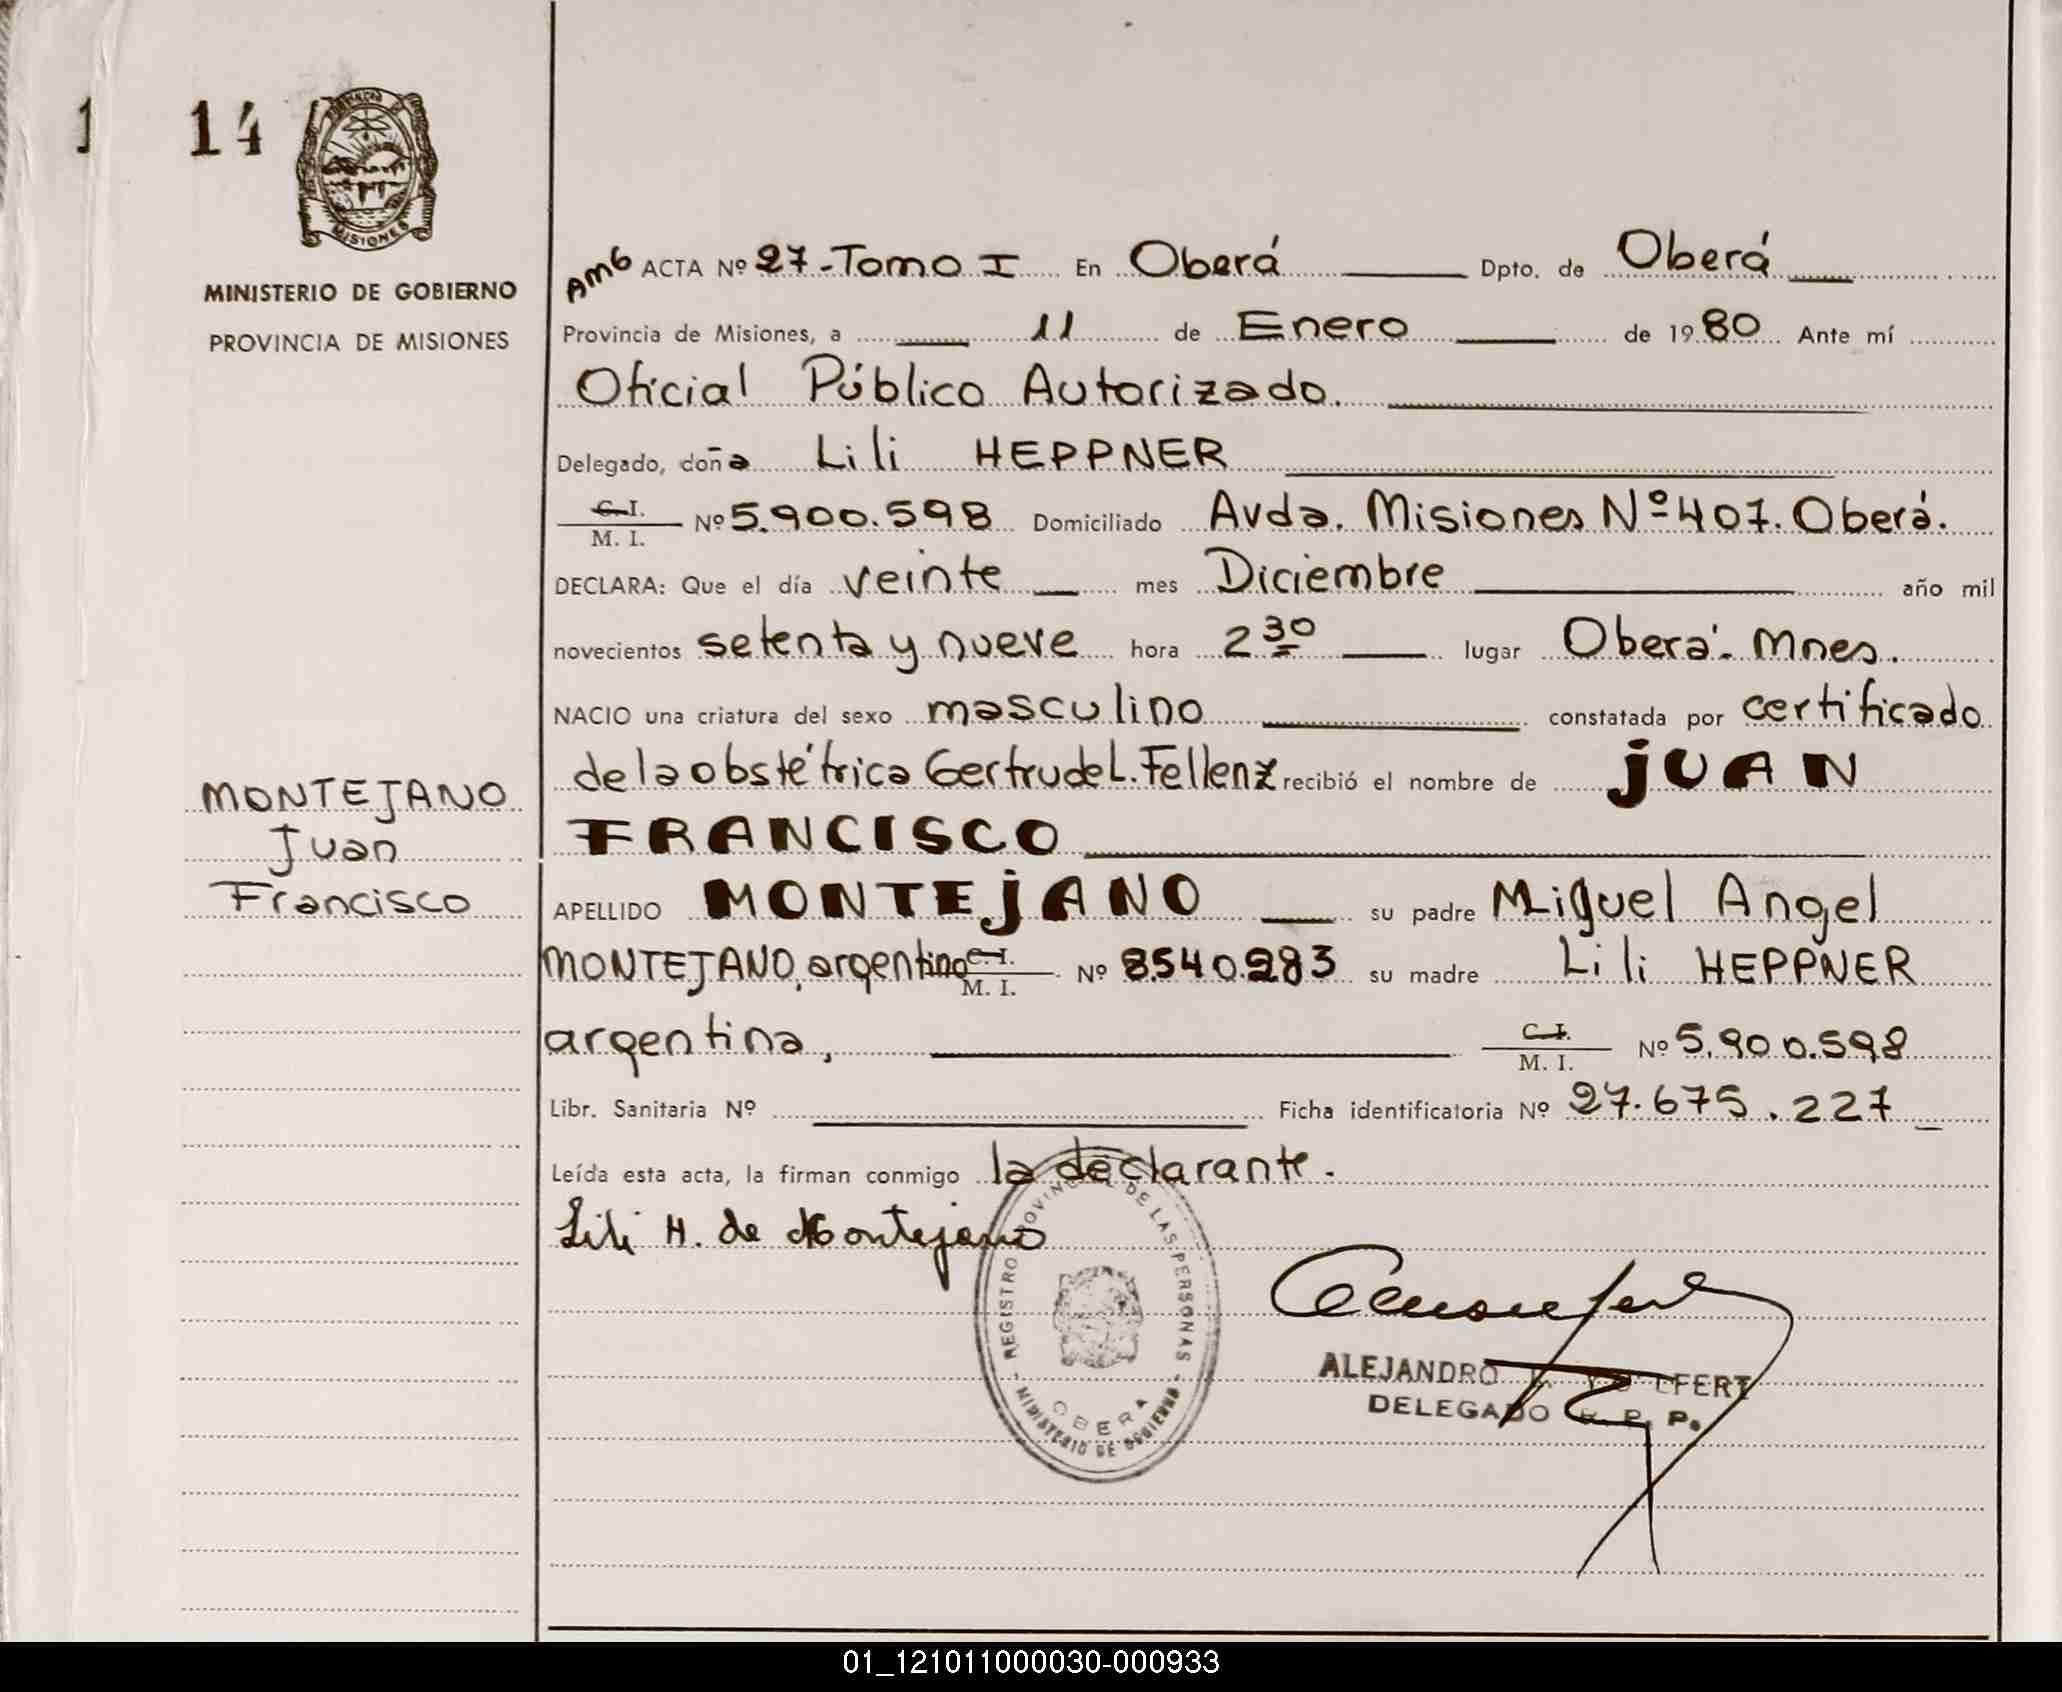 1 14
PROVINCIA DE
MISIONES
MINISTERIO DE GOBIERNO
PROVINCIA DE MISIONES
MONTEJANO
Juan
Francisco
Amb ACTA Nº 27-Tomo I En Oberá Dpto. de Oberá
Provincia de Misiones, a 11 de Enero de 1980 Ante mí
Oficial Público Autorizado.
Delegado, doña Lili HEPPNER
C.I.
M. I. Nº 5.900.598 Domiciliado Avda. Misiones Nº 407. Oberá.
DECLARA: Que el día veinte mes Diciembre año mil
novecientos setenta y nueve hora 2 30 lugar Oberá- Mnes.
NACIO una criatura del sexo masculino constatada por certificado
de la obstétrica Gertrude L. Fellenz recibió el nombre de jUAN
FRANCISCO
APELLIDO MONTEjANO su padre Miguel Angel
MONTEJANO, argentino C.I. M. I. Nº 8.540.283 su madre Lili HEPPNER
argentina, C.I. M. I. Nº 5.900.598
Libr. Sanitaria Nº Ficha identificatoria Nº 27.675.227
Leída esta acta, la firman conmigo la declarante.
Lili H. de Montejano
REGISTRO PROVINCIAL DE LAS PERSONAS
OBERA
MINISTERIO DE GOBIERNO
ALEJANDRO
DELEGADO R. P. P.
01_121011000030-000933